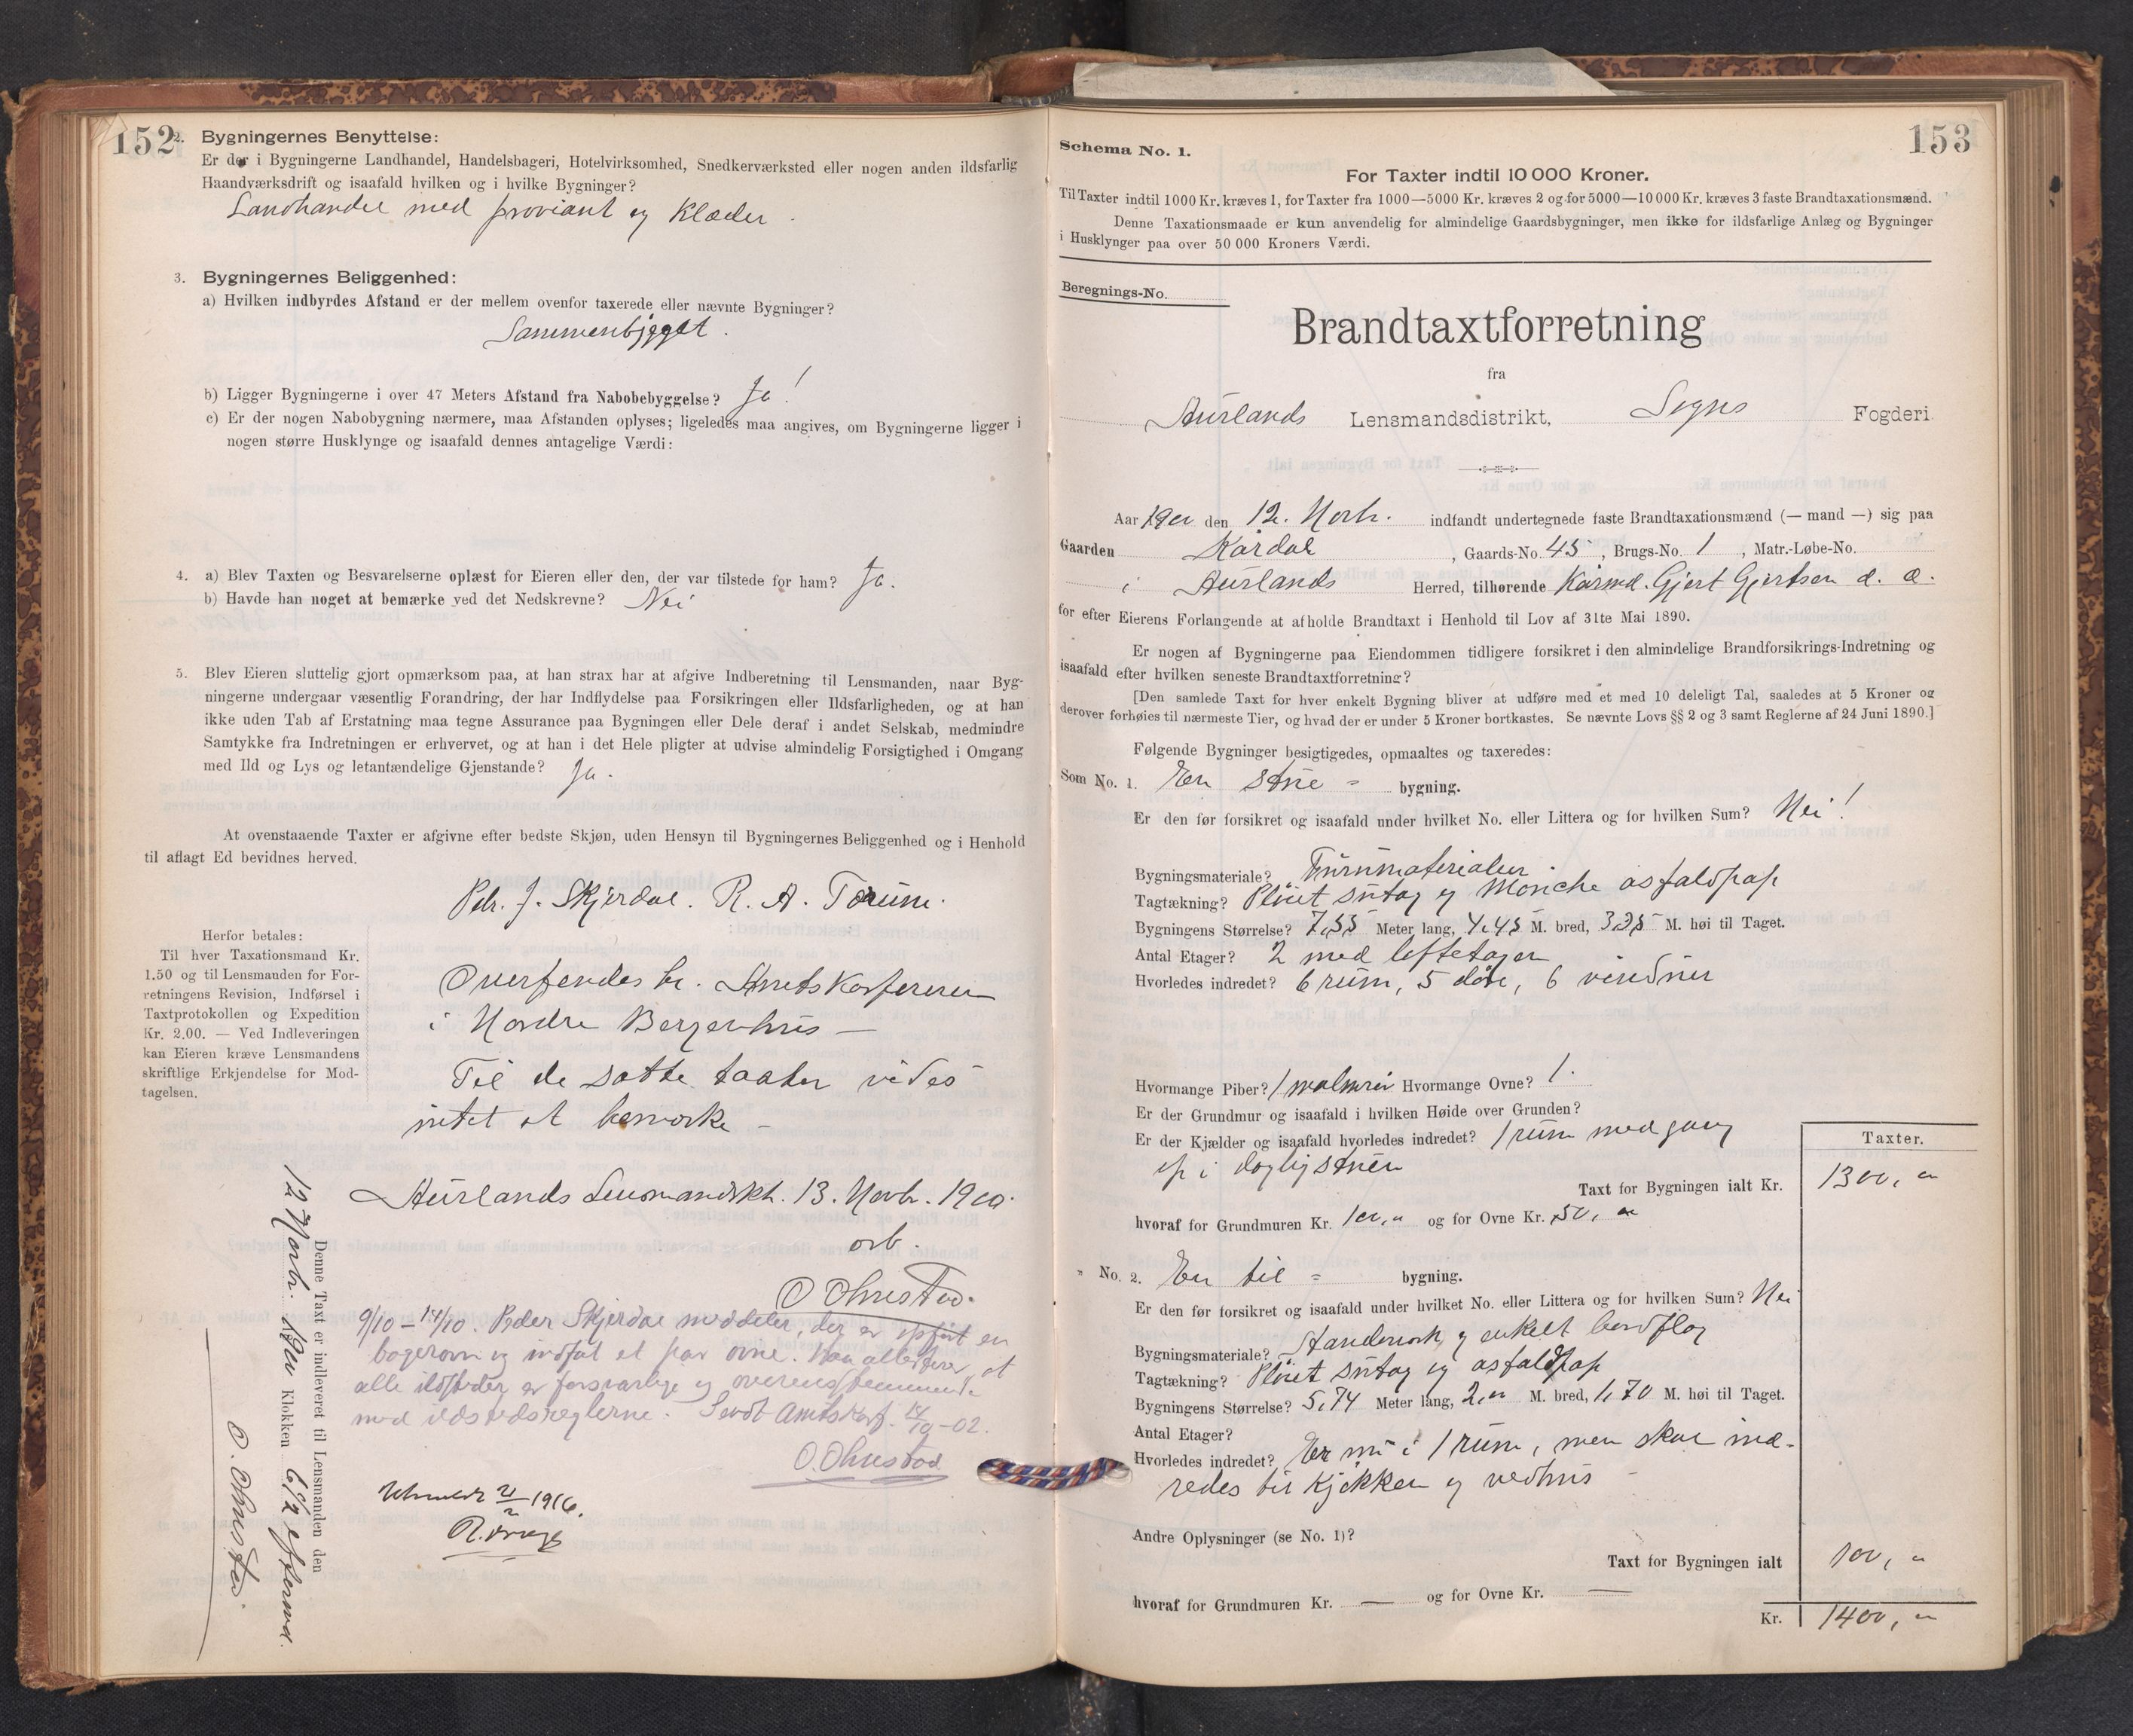 152
2. Bygningernes Benyttelse:
Er der i Bygningerne Landhandel, Handelsbageri, Hotelvirksomhed, Snedkerværksted eller nogen anden ildsfarlig
Haandværksdrift og isaafald hvilken og i hvilke Bygninger?
Landhandel med proviant og Klæder.
3. Bygningernes Beliggenhed:
a) Hvilken indbyrdes Afstand er der mellem ovenfor taxerede eller nævnte Bygninger?
Sammenbygget.
b) Ligger Bygningerne i over 47 Meters Afstand fra Nabobebyggelse? Ja!
c) Er der nogen Nabobygning nærmere, maa Afstanden oplyses; ligeledes maa angives, om Bygningerne ligger i
nogen større Husklynge og isaafald dennes antagelige Værdi:
4. a) Blev Taxten og Besvarelserne oplæst for Eieren eller den, der var tilstede for ham? Ja.
b) Havde han noget at bemærke ved det Nedskrevne? Nei
5. Blev Eieren sluttelig gjort opmærksom paa, at han strax har at afgive Indberetning til Lensmanden, naar Byg-
ningerne undergaar væsentlig Forandring, der har Indflydelse paa Forsikringen eller Ildsfarligheden, og at han
ikke uden Tab af Erstatning maa tegne Assurance paa Bygningen eller Dele deraf i andet Selskab, medmindre
Samtykke fra Indretningen er erhvervet, og at han i det Hele pligter at udvise almindelig Forsigtighed i Omgang
med Ild og Lys og letantændelige Gjenstande? Ja.
At ovenstaaende Taxter er afgivne efter bedste Skjøn, uden Hensyn til Bygningernes Beliggenhed og i Henhold
til aflagt Ed bevidnes herved.
Pedr. J. Skjerdal. R. A. Tærum.
Herfor betales:
Til hver Taxationsmand Kr.
1.50 og til Lensmanden for For-
retningens Revision, Indførsel i
Taxtprotokollen og Expedition
Kr. 2.00. — Ved Indleveringen
kan Eieren kræve Lensmandens
skriftlige Erkjendelse for Mod-
tagelsen.
Oversendes hr. Amtskassereren
i Nordre Bergenhus —
Til de satte taxter vides
intet at bemærke —
Aurlands Lensmandskt. 13. Novb. 1900.
O Ohnstad.
9/10 – 14/10. Peder Skjerdal meddeler, der er opført en
bagerovn og indsat et par ovne. Han attesterer, at
alle ildsteder er forsvarlige og overensstemmende
med ildstedsreglerne. Sendt Amtskas. 14/10-02.
O. Ohnstad
Denne Taxt er indleveret til Lensmanden den
12 Novbr. 1900 Klokken 6 1/2 eftermd.
O. Ohnstad
153
Schema No. 1.
For Taxter indtil 10 000 Kroner.
Til Taxter indtil 1000 Kr. kræves 1, for Taxter fra 1000—5000 Kr. kræves 2 og for 5000—10 000 Kr. kræves 3 faste Brandtaxationsmænd.
Denne Taxationsmaade er kun anvendelig for almindelige Gaardsbygninger, men ikke for ildsfarlige Anlæg og Bygninger
i Husklynger paa over 50 000 Kroners Værdi.
Beregnings-No.
Brandtaxtforretning
fra
Aurlands Lensmandsdistrikt, Sogns Fogderi
Aar 1900 den 12. Novb. indfandt undertegnede faste Brandtaxationsmænd (— mand —) sig paa
Gaarden Kårdal, Gaards-No. 45, Brugs-No. 1, Matr.-Løbe-No.
i Aurlands Herred, tilhørende Gjert Gjertsen
for efter Eierens Forlangende at afholde Brandtaxt i Henhold til Lov af 31te Mai 1890.
Er nogen af Bygningerne paa Eiendommen tidligere forsikret i den almindelige Brandforsikrings-Indretning og
isaafald efter hvilken seneste Brandtaxtforretning?
[Den samlede Taxt for hver enkelt Bygning bliver at udføre med et med 10 deleligt Tal, saaledes at 5 Kroner og
derover forhøies til nærmeste Tier, og hvad der er under 5 Kroner bortkastes. Se nævnte Lovs §§ 2 og 3 samt Reglerne af 24 Juni 1890.]
Følgende Bygninger besigtigedes, opmaaltes og taxeredes:
Som No. 1. En stue = bygning.
Er den før forsikret og isaafald under hvilket No. eller Littera og for hvilken Sum? Nei!
Bygningsmateriale? Furumaterialer.
Tagtækning? Pløiet sutag og asfaldpap
Bygningens Størrelse? 7,55 Meter lang, 4,45 M. bred, 3,35 M. høi til Taget.
Antal Etager? 2 med loftetager
Hvorledes indredet? 6 rum, 5 døre, 6 vinduer
Hvormange Piber? 1 Hvormange Ovne? 1.
Er der Grundmur og isaafald i hvilken Høide over Grunden?
Er der Kjælder og isaafald hvorledes indredet? 1 rum med gang
op i dagligstuen
Taxter.
Taxt for Bygningen ialt Kr. 1300, "
hvoraf for Grundmuren Kr. 100, " og for Ovne Kr. 50, "
" No. 2. En til = bygning.
Er den før forsikret og isaafald under hvilket No. eller Littera og for hvilken Sum? Nei
Bygningsmateriale? Standerverk og enkelt bordflag
Tagtækning? Pløiet sutag og asfaldpap
Bygningens Størrelse? 5,74 Meter lang, 2," M. bred, 1,70 M. høi til Taget.
Antal Etager?
Hvorledes indredet? Er nu i 1 rum, men skal ind-
redes til Kjøkken og vedhus —
Andre Oplysninger (se No. 1)?
Taxt for Bygningen ialt 100, "
hvoraf for Grundmuren Kr. — og for Ovne Kr. —
Kr. 1400, "